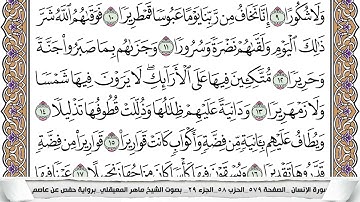 وَلَا شُكُورًا ۝٩ إِنَّا نَخَافُ مِن رَّبِّنَا يَوْمًا عَبُوسًا قَمْطَرِيرًا ۝١٠ فَوَقَىٰهُمُ ٱللَّهُ شَرَّ
ذَٰلِكَ ٱلْيَوْمِ وَلَقَّىٰهُمْ نَضْرَةً وَسُرُورًا ۝١١ وَجَزَىٰهُم بِمَا صَبَرُوا۟ جَنَّةً
وَحَرِيرًا ۝١٢ مُّتَّكِـِٔينَ فِيهَا عَلَى ٱلْأَرَآئِكِ ۖ لَا يَرَوْنَ فِيهَا شَمْسًا
وَلَا زَمْهَرِيرًا ۝١٣ وَدَانِيَةً عَلَيْهِمْ ظِلَٰلُهَا وَذُلِّلَتْ قُطُوفُهَا تَذْلِيلًا ۝١٤
وَيُطَافُ عَلَيْهِم بِـَٔانِيَةٍ مِّن فِضَّةٍ وَأَكْوَابٍ كَانَتْ قَوَارِيرَا۠ ۝١٥ قَوَارِيرَا۟ مِن فِضَّةٍ
سورة الإنسان _ الصفحة ٥٧٩ _ الحزب ٥٨ _ الجزء ٢٩ _ بصوت الشيخ ماهر المعيقلي _ برواية حفص عن عاصم